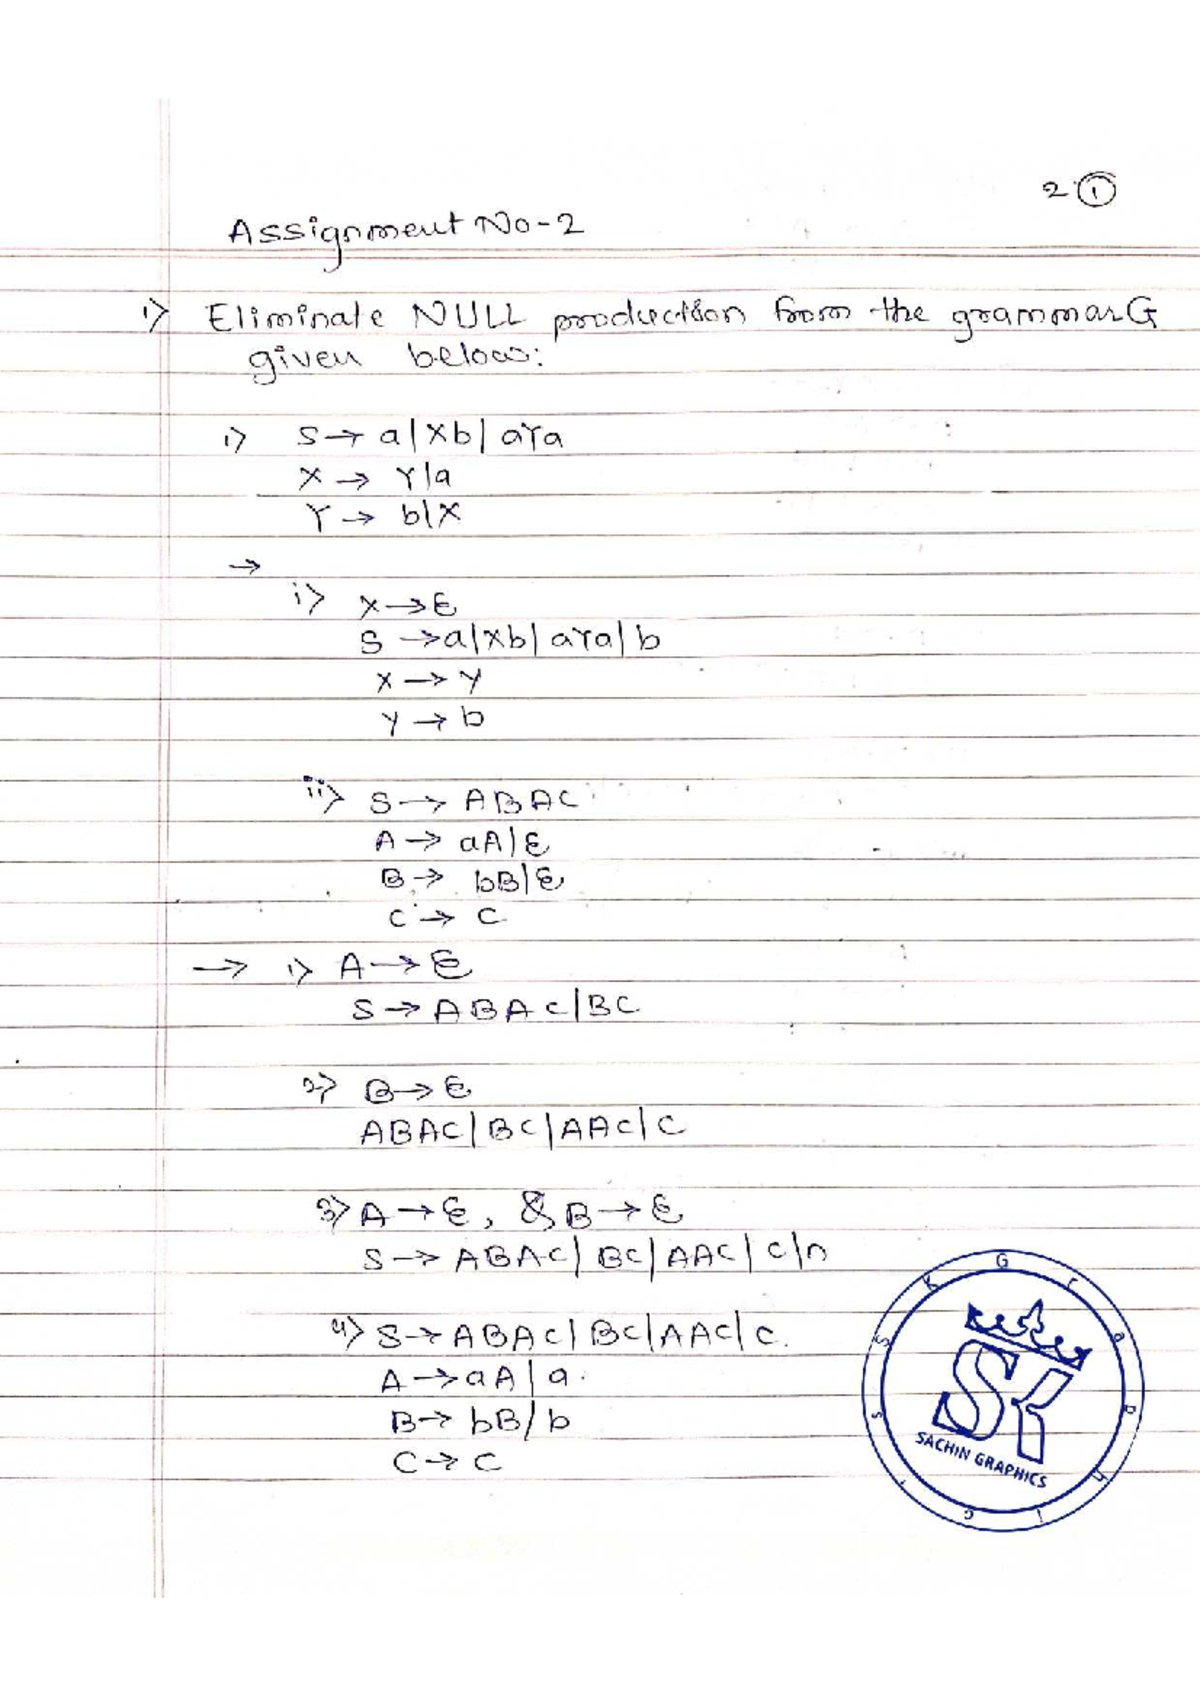 2 ①
Assignment No-2
1) Eliminate NULL production from the grammar G
given below:
1) S → a | Xb | aYa
X → Y | a
Y → b | X
→
i) X → ε
S → a | Xb | aYa | b
X → Y
Y → b
ii) S → ABAC
A → aA | ε
B → bB | ε
C → C
→ 1) A → ε
S → ABAC | BC
2) B → ε
ABAC | BC | AAC | C
3) A → ε, & B → ε
S → ABAC | BC | AAC | C | n
4) S → ABAC | BC | AAC | C.
A → aA | a
B → bB / b
C → C
SSK Graphics
SK
SACHIN GRAPHICS